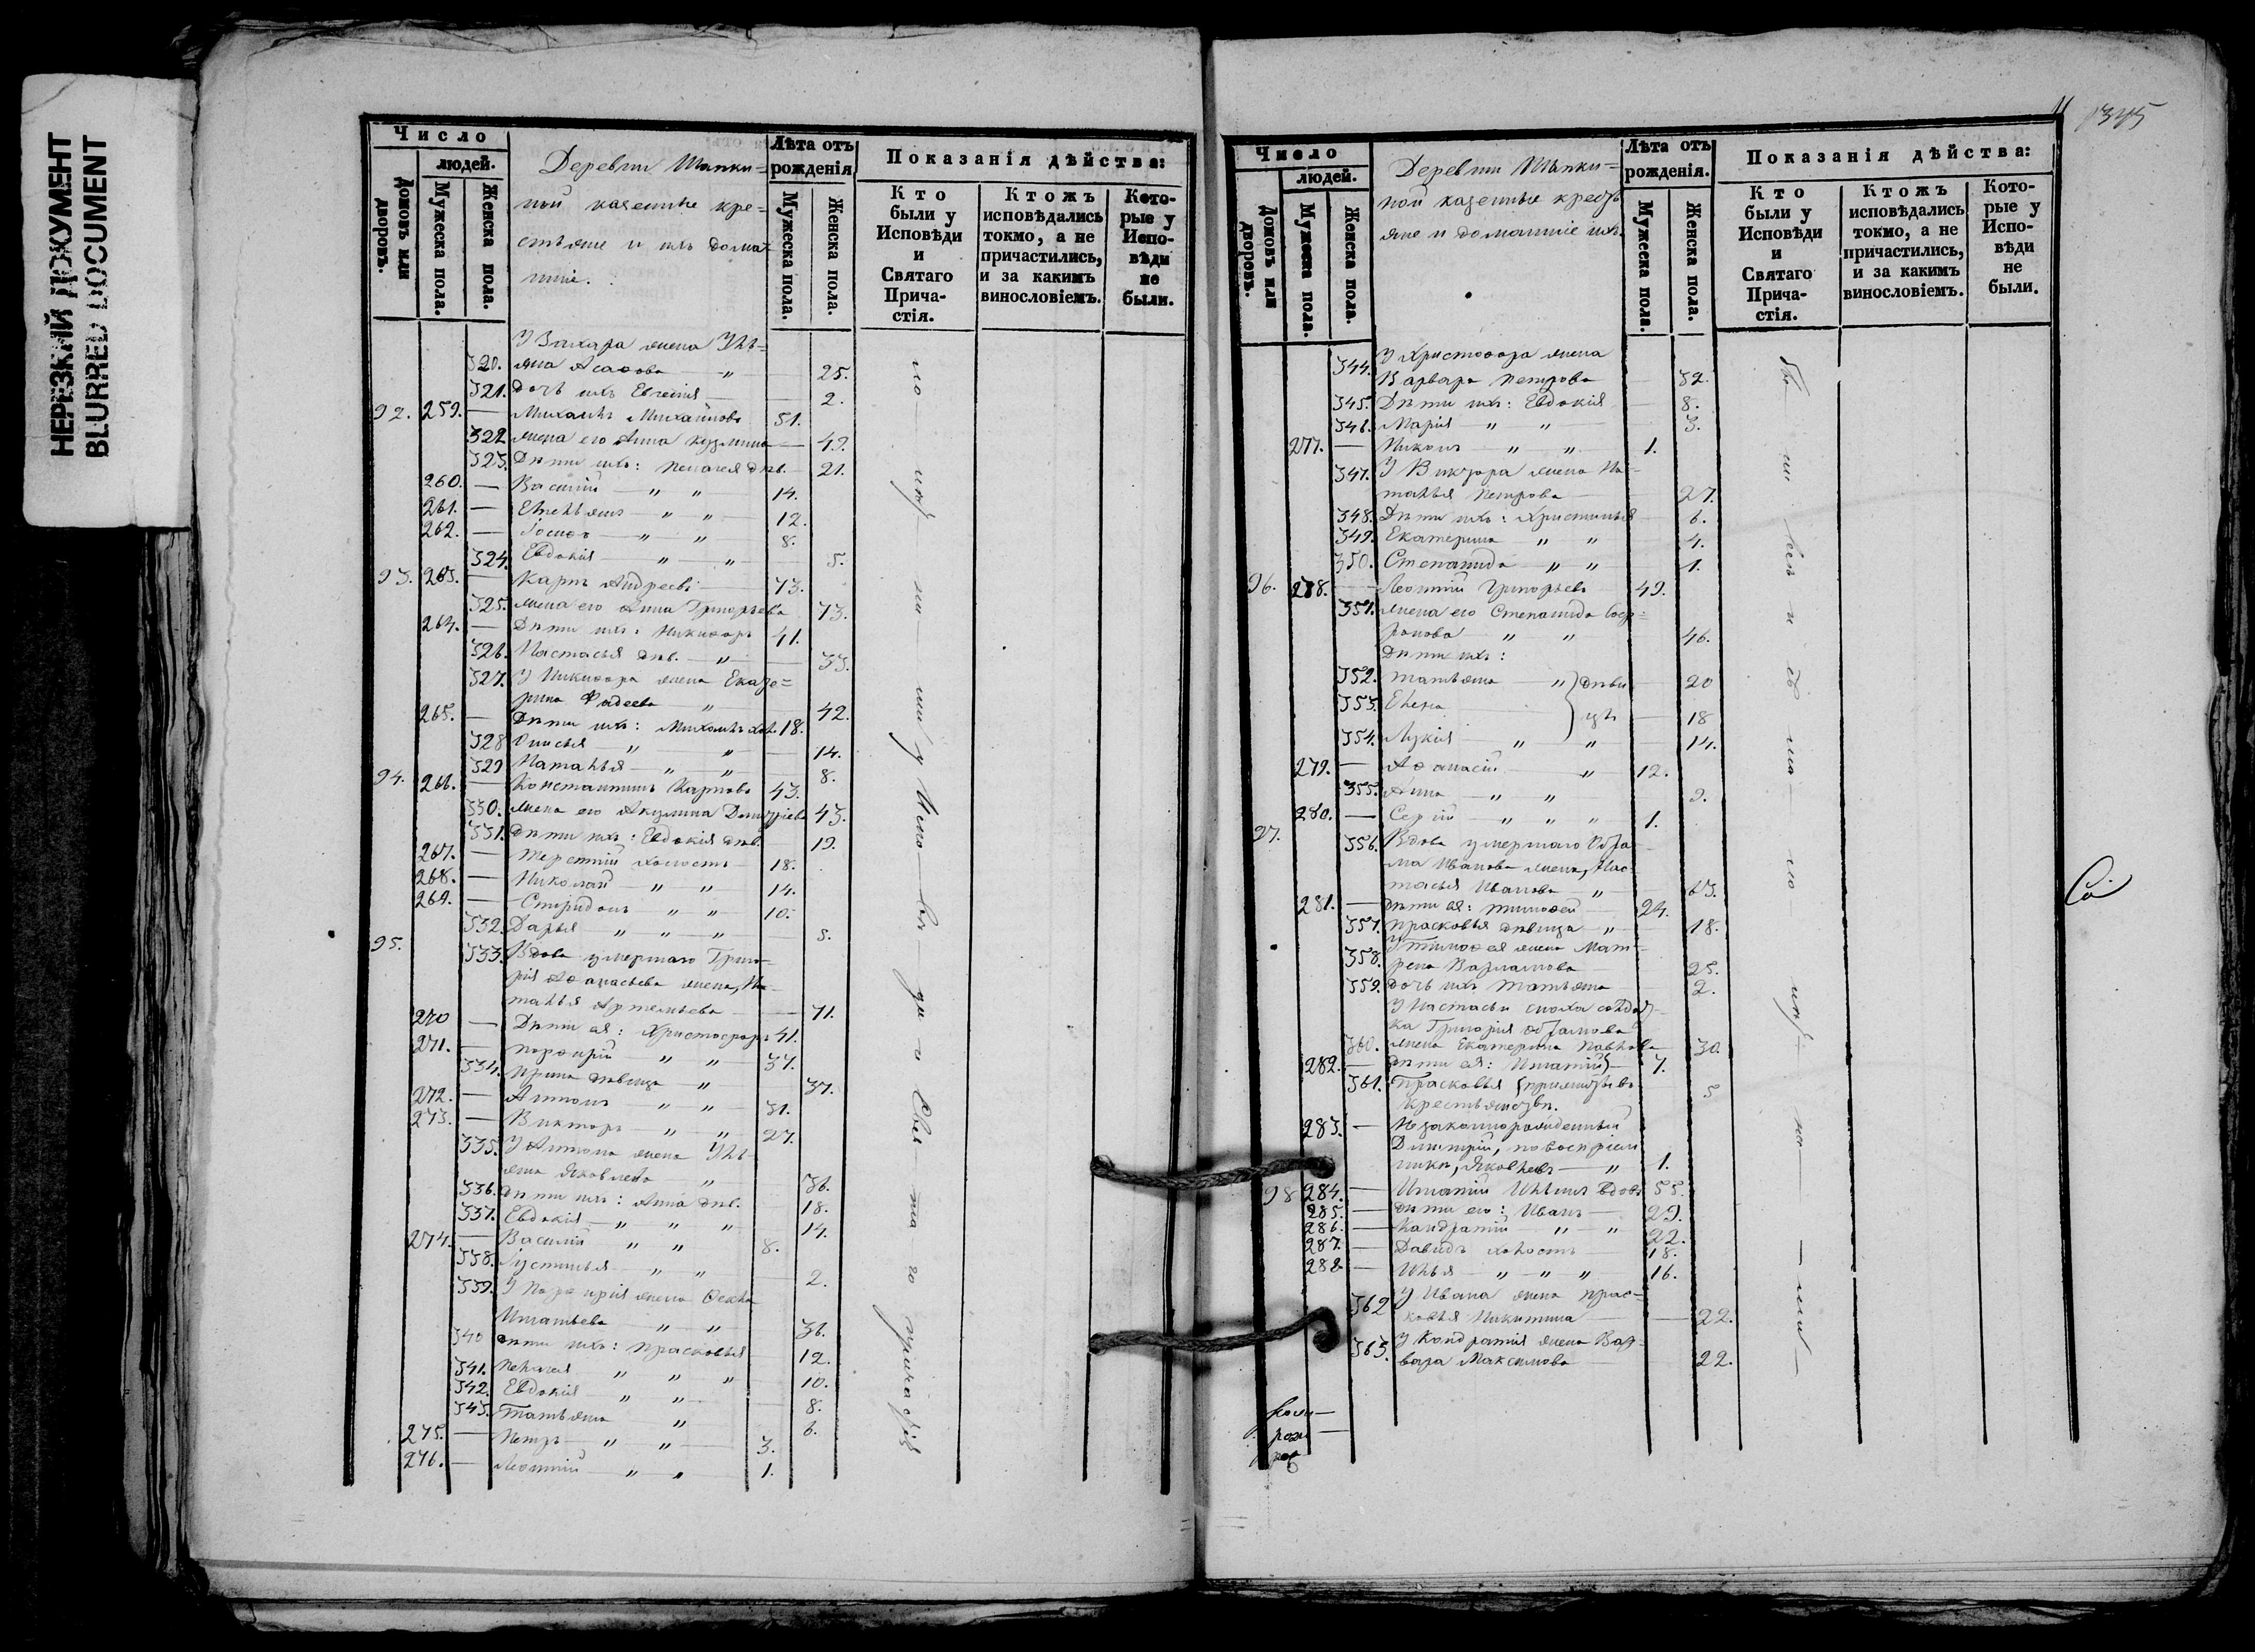 НЕРЕЗКИЙ ДОКУМЕНТ
BLURRED DOCUMENT
Число
людей.
Домовъ или дворовъ.
Мужеска пола.
Женска пола.
Деревни Шапки=
ной казенные кре=
стьяне и ихъ домаш=
ніе.
Лѣта отъ
рожденія
Мужеска пола.
Женска пола.
Показанія дѣйства:
Кто
были у
Исповѣди
и
Святаго
Прича-
стія.
Ктожъ
исповѣдались
токмо, а не
причастились,
и за какимъ
винословіемъ.
Кото-
рые у
Испо-
вѣди
не
были.
У Захара жена Улъ=
320. яна Асафова — " — 25.
321. дочь ихъ Евгенія — 2.
92. 259. — Михаилъ Михайловъ 51.
322. жена его Анна Кузмина — 49.
323. Дѣти ихъ: Пелагея дѣв. — 21.
260. — Василій — " " 14.
261. — Емельянъ — " " 12.
262. — Іосифъ — " " 8.
324. Евдокія — " " 5.
93. 263. — Карпъ Андреевъ — 73.
325. жена его Анна Григорьева 73.
264. — Дѣти ихъ: Никифоръ 41.
326. Настасья дѣв. — " — 33.
327. У Никифора жена Екате=
рина Фадеева " 42.
265. — Дѣти ихъ: Михаилъ хол. 18.
328 Онисья — " " 14.
329 Наталья — " " 8.
94. 266. — Константинъ Карповъ 43.
330. жена его Акулина Дмитріева 43.
331. дѣти ихъ: Евдокія дѣв. 19.
267. — Терентій холостъ — 18.
268. — Николай — " " 14.
269. — Спиридонъ " " 10.
332. Дарья — " " " 5.
95. 333. Вдова умершаго Григо-
рія Афанасьева жена, На-
талья Артемьева — 71.
270 — Дѣти ея: Христофоръ 41.
271. — Порфирій " " 37.
334. Ирина дѣвица — " 37.
272. — Антонъ — " " 31.
273. — Викторъ — " " 27.
335. У Антона жена Улъ-
яна Яковлева " 36.
336. дѣти ихъ: Анна дѣв. 18.
337. Евдокія — " " " 14.
274. — Василій " " 8.
338. Іустинья — " " 2.
339. У Порфирія жена Фекла
Игнатьева " " 36.
340 дѣти ихъ: Прасковья 12.
341. Пелагея " " " 10.
342. Евдокія " " 8.
343. Татьяна " 6.
275. — Петръ — " " 3.
276. — Леонтій " " 1.
1345
Число
людей.
Домовъ или дворовъ.
Мужеска пола.
Женска пола.
Деревни Шапки=
ной казенные кресть
яне и домашніе ихъ.
Лѣта отъ
рожденія.
Мужеска пола.
Женска пола.
Показанія дѣйства:
Кто
были у
Исповѣди
и
Святаго
Прича-
стія.
Ктожъ
исповѣдались
токмо, а не
причастились,
и за какимъ
винословіемъ.
Кото-
рые у
Испо-
вѣди
не
были.
У Христофора жена
344. Варвара Петрова 32.
345. Дѣти ихъ: Евдокія 8.
346. Марія " " 3.
277. — Никонъ — " " 1.
347. У Виктора жена На-
талья Петрова 27.
348. Дѣти ихъ: Христинья 6.
349. Екатерина — " " 4.
350. Степанида " " 1.
96. 278. — Леонтій Григорьевъ 49.
351. жена его Степанида Соф=
ронова " " 46.
Дѣти ихъ:
352. Татьяна — " дѣви 20
353. Елена цы 18
354. Лукія " " 14.
279. — Афанасій " 12.
355. Анна " " 9.
280. — Сергій " " " 1.
97. 356. Вдова умершаго Абра
ма Иванова жена, Нас-
тасья Иванова " 63.
281. — дѣти ея: Тимофей 24.
357. Прасковья дѣвица " 18.
358. У Тимофея жена Мат-
рена Варламова 25.
359. дочь ихъ Татьяна 2.
У Настасьи сноха солдат-
ка Григорія Абрамова
360. жена Екатерина Павлова 30.
282. — дѣти ея: Игнатій 7.
361. Прасковья 5
крестьянствѣ.
283. — Незаконнорожденный
Дмитрій, по воспріем
нику, Яковлевъ — " 1.
98 284. — Игнатій Ильинъ вдовъ 55.
285. — дѣти его: Иванъ 29.
286. — Кандратій " " 22.
287. — Давидъ холостъ 18.
288. — Илья " " " 16.
362 У Ивана жена Прас-
ковья Никитина 22.
363. У Кондратія жена Вар-
вара Максимова 22.